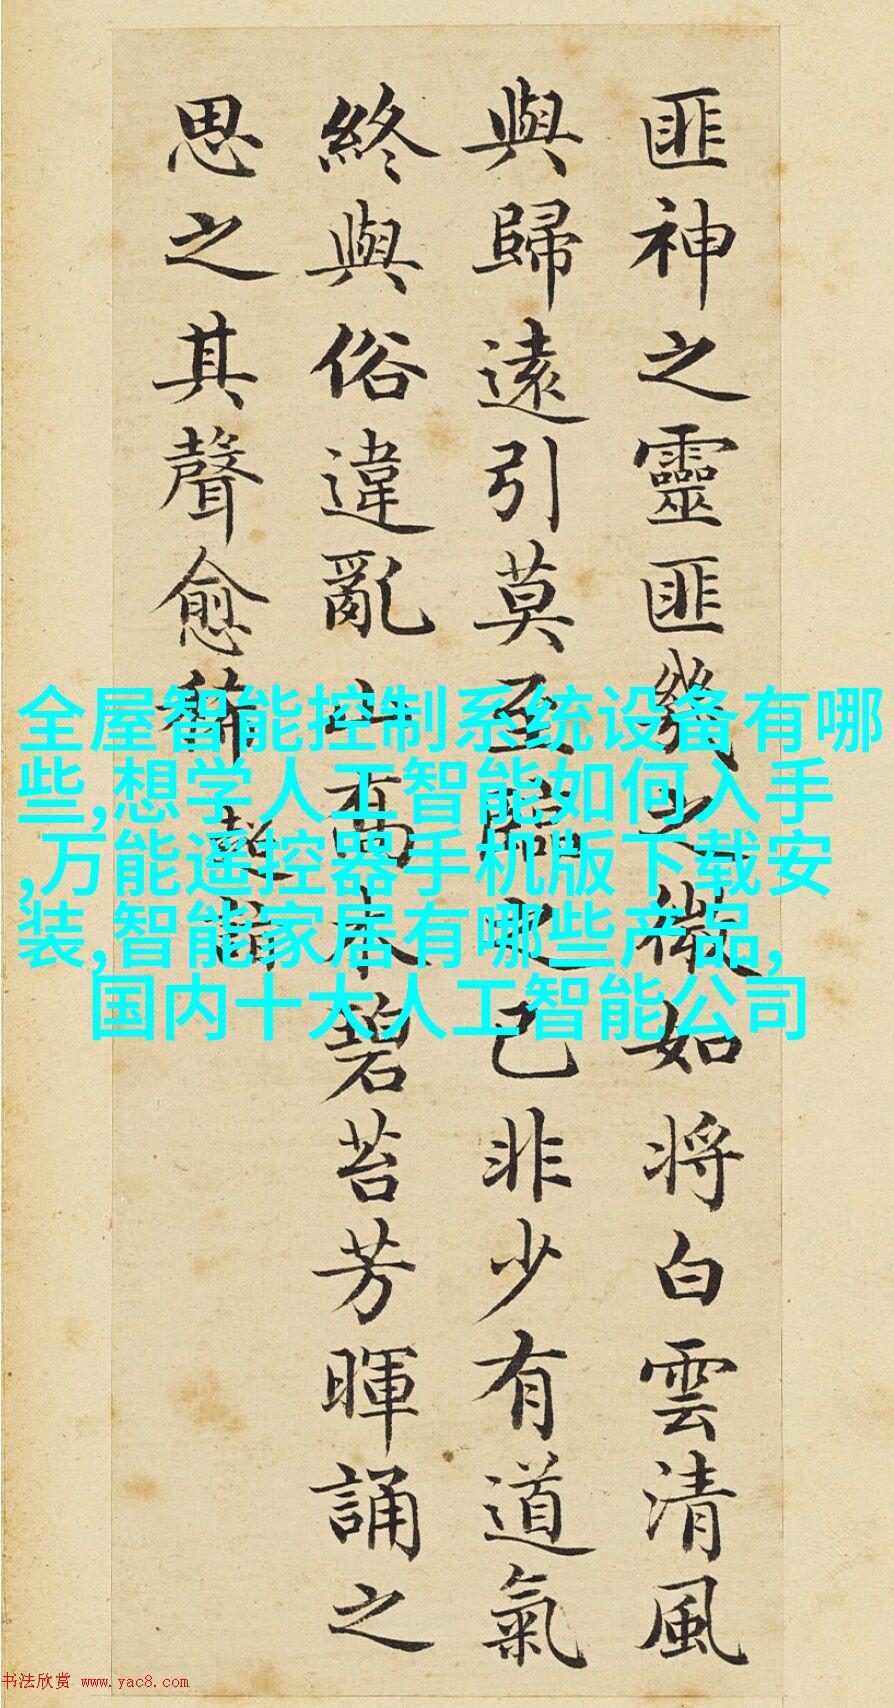 匪神之靈匪幾之微如將白雲清風
與歸遠引莫至臨之已非少有道氣
終與俗違亂山木碧苔芳暉誦之
思之其聲愈稀 超詣
全屋智能控制系统设备有哪
些,想学人工智能如何入手
,万能遥控器手机版下载安
装,智能家居有哪些产品,
国内十大人工智能公司
书法欣赏 www.yac8.com